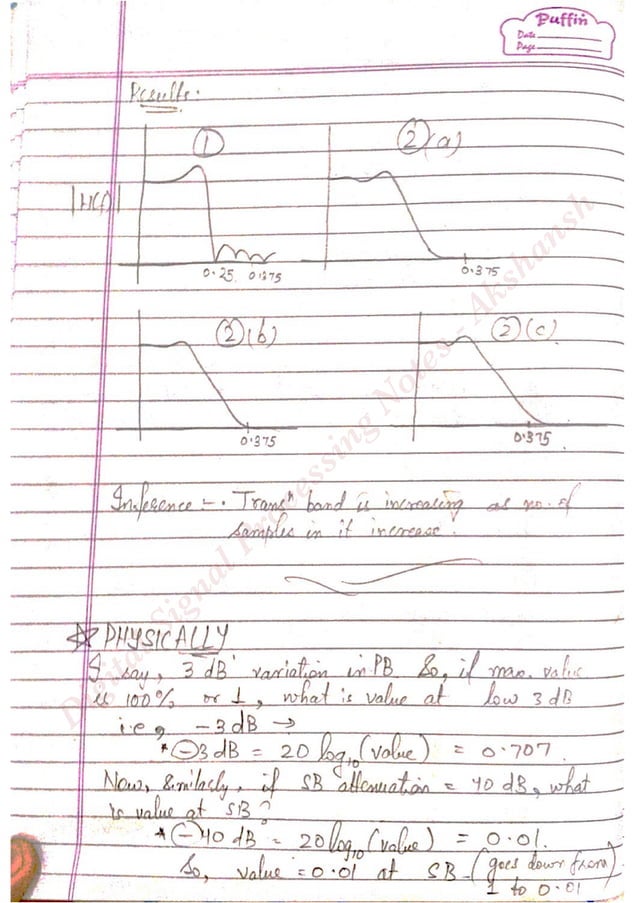 Puffin
Date
Page
Results:
①
②(a)
|H(f)|
0.25 0.375
0.375
②(b)
②(c)
0.375
0.375
Inference :- Transⁿ band is increasing as no. of
samples in it increase.
Digital Signal Processing Notes - Akshansh
☆ PHYSICALLY
I say, 3 dB variation in PB So, if max. value
is 100% or 1, what is value at low 3 dB
i.e, -3 dB →
* -3 dB = 20 log₁₀(value) = 0.707.
Now, Similarly, if SB attenuation = 40 dB, what
is value at SB?
* -40 dB = 20 log₁₀(value) = 0.01.
So, value = 0.01 at SB - (goes down from
1 to 0.01)